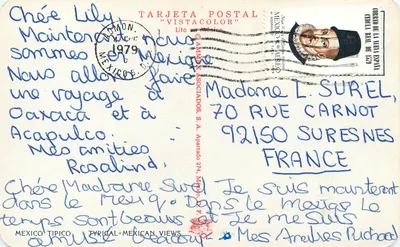 TARJETA POSTAL
"VISTACOLOR"
Lito
Chée Lily
Maintenant nous
sommes en Mexique
Nous allons faire
une voyage à
Oaxaca et à
Acapulco.
Mes amities
Rosalind.
1979
MEXICO
Madame L. SUREL,
70 RUE CARNOT
92150 SURESNES
FRANCE
ASOCIADOS, S. A.
Chére Madame Surel Je suis maintenant
dans le Mexiq. Dans le Mexiqe Le
temps sont beaux et Je me suis
amusé
Mes Amities Richard
MEXICO TIPICO
TYPICAL MEXICAN VIEWS